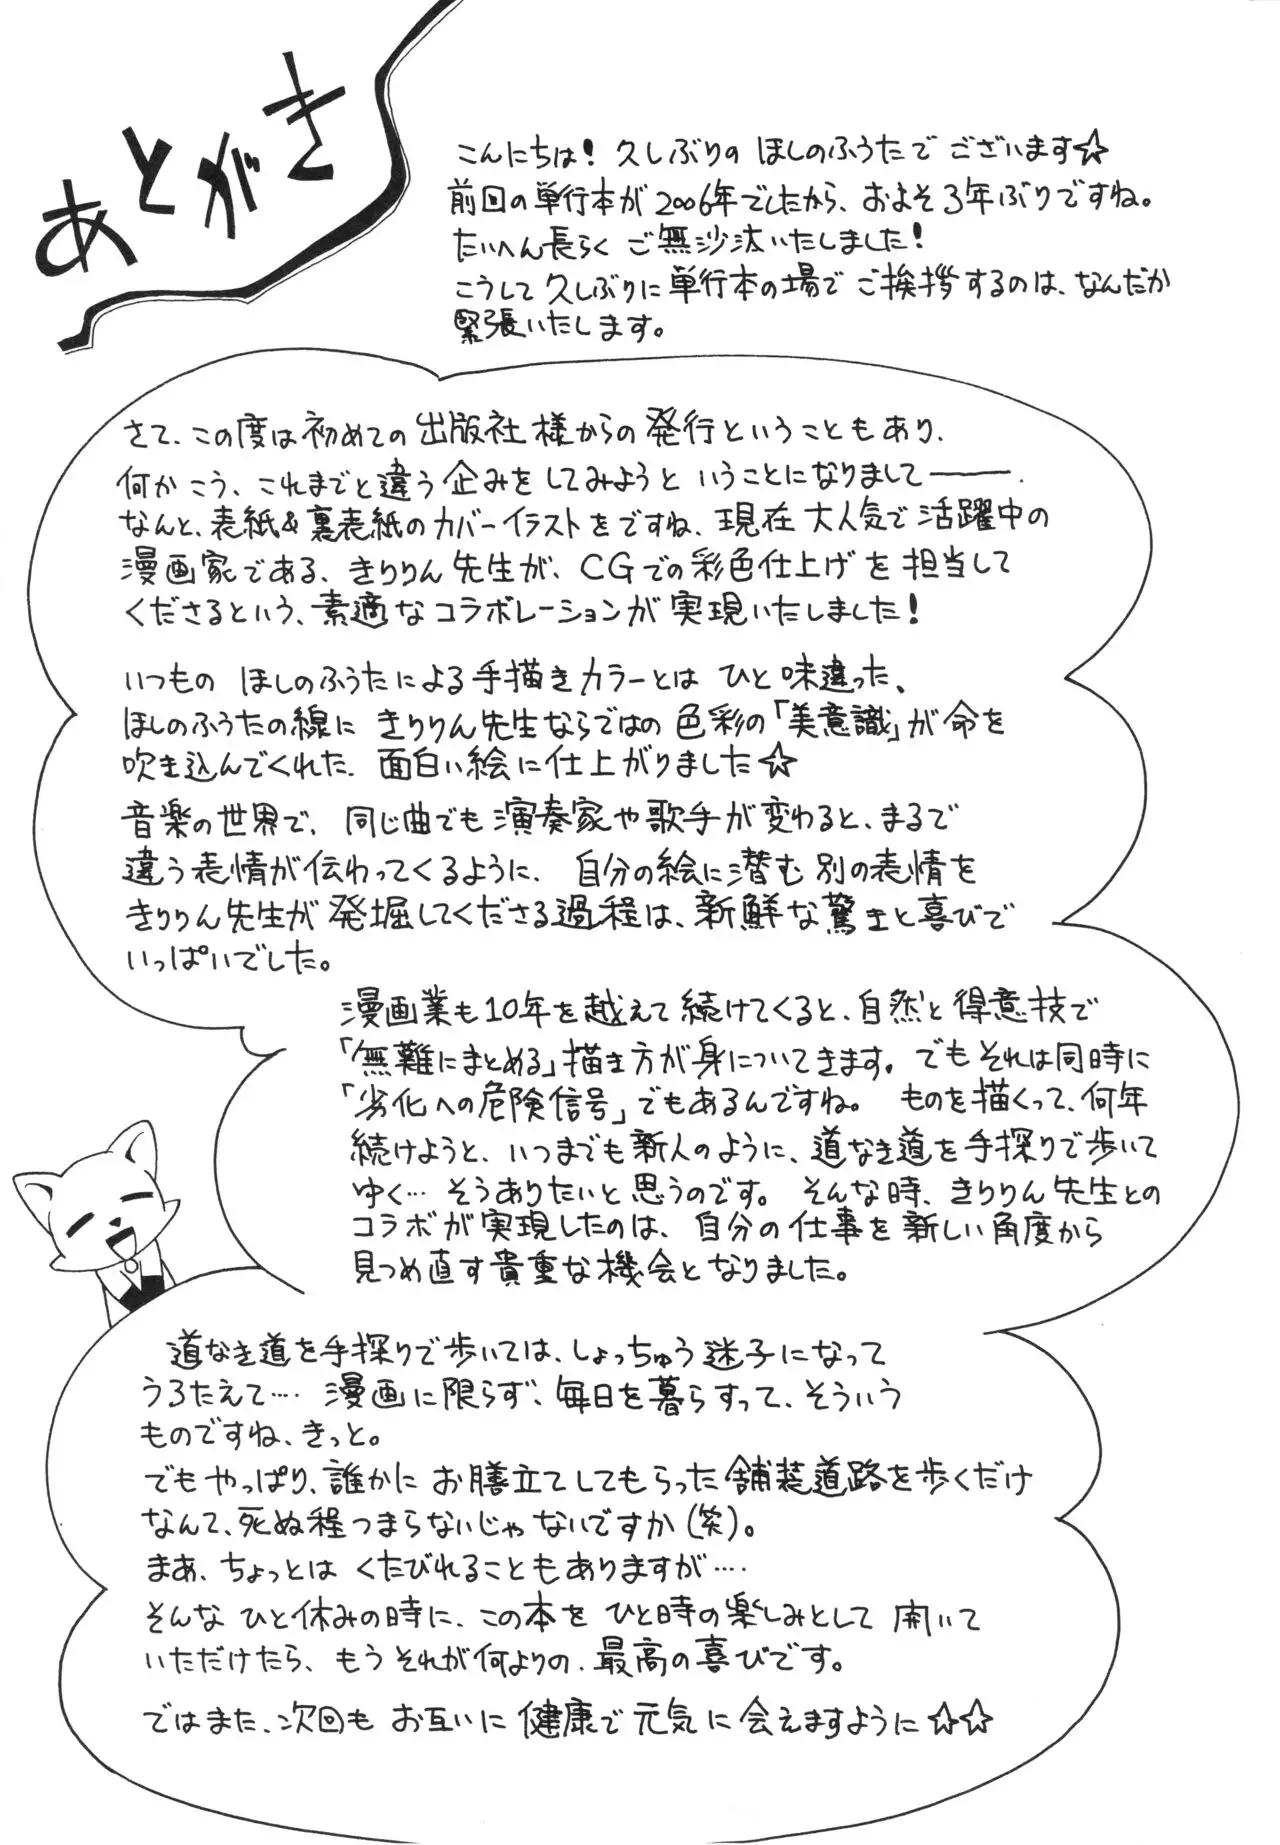 あとがき
こんにちは！久しぶりの ほしのふうたで ございます☆
前回の単行本が2006年でしたから、およそ3年ぶりですね。
たいへん長らく ご無沙汰いたしました！
こうして久しぶりに単行本の場で ご挨拶するのは、なんだか
緊張いたします。
さて、この度は初めての出版社様からの発行ということもあり、
何か こう、これまでと違う企みをしてみようと いうことになりまして――。
なんと、表紙&裏表紙のカバーイラストをですね、現在 大人気で活躍中の
漫画家である、きりりん先生が、CGでの彩色仕上げを 担当して
くださるという、素適なコラボレーションが実現いたしました！
いつもの ほしのふうたによる手描きカラーとは ひと味違った、
ほしのふうたの線に きりりん先生ならではの 色彩の「美意識」が命を
吹き込んでくれた、面白い絵に仕上がりました☆
音楽の世界で、同じ曲でも演奏家や歌手が変わると、まるで
違う表情が伝わってくるように、自分の絵に潜む別の表情を
きりりん先生が 発掘してくださる過程は、新鮮な驚きと喜びで
いっぱいでした。
漫画業も10年を越えて続けてくると、自然と得意技で
「無難にまとめる」描き方が身についてきます。でもそれは同時に
「劣化への危険信号」でもあるんですね。 ものを描くって、何年
続けようと、いつまでも新人のように、道なき道を手探りで歩いて
ゆく… そうありたいと思うのです。 そんな時、きりりん先生との
コラボが実現したのは、自分の仕事を新しい角度から
見つめ直す貴重な機会となりました。
道なき道を手探りで歩いては、しょっちゅう迷子になって
うろたえて…. 漫画に限らず、毎日を暮らすって、そういう
ものですね、きっと。
でもやっぱり、誰かに お膳立てしてもらった舗装道路を歩くだけ
なんて、死ぬ程つまらないじゃないですか(笑)。
まあ、ちょっとは くたびれることもありますが….
そんな ひと休みの時に、この本を ひと時の楽しみとして 開いて
いただけたら、もう それが何よりの、最高の喜びです。
ではまた、次回も お互いに 健康で 元気に 会えますように☆☆